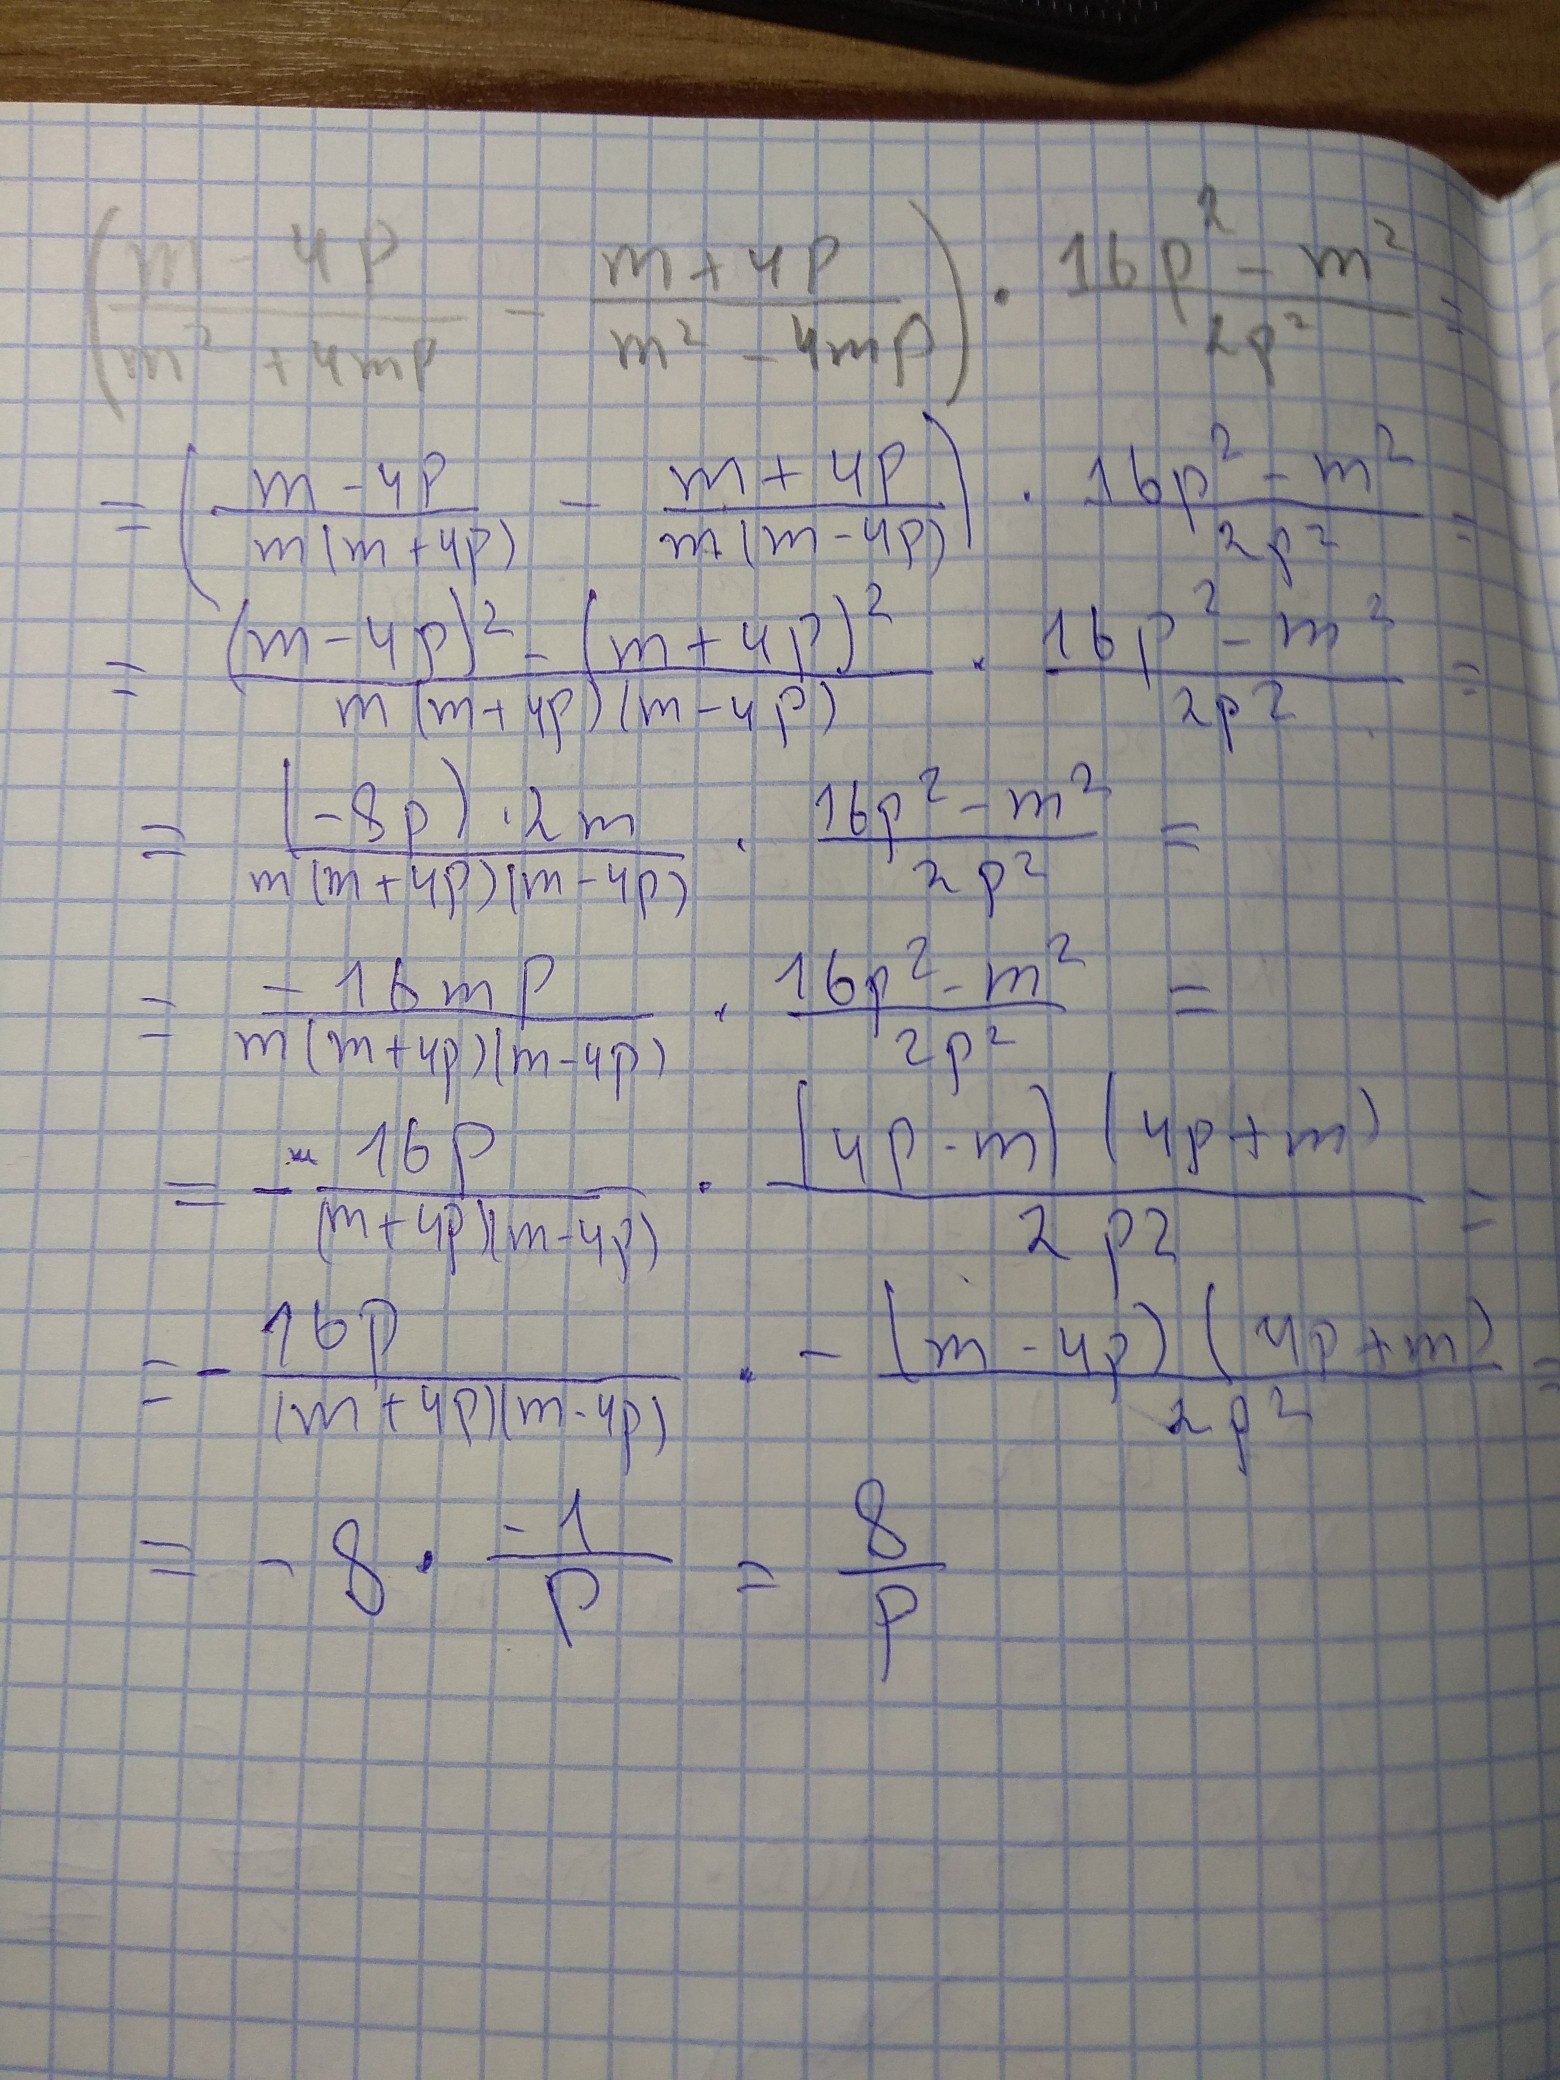 (m - 4p / m² + 4mp - m + 4p / m² - 4mp) · 16p² - m² / 2p² =
= (m - 4p / m(m + 4p) - m + 4p / m(m - 4p)) · 16p² - m² / 2p² =
= (m - 4p)² - (m + 4p)² / m(m + 4p)(m - 4p) · 16p² - m² / 2p² =
= (-8p) · 2m / m(m + 4p)(m - 4p) · 16p² - m² / 2p² =
= - 16mp / m(m + 4p)(m - 4p) · 16p² - m² / 2p² =
= - 16p / (m + 4p)(m - 4p) · (4p - m)(4p + m) / 2p² =
= - 16p / (m + 4p)(m - 4p) · - (m - 4p)(4p + m) / 2p² =
= - 8 · -1 / p = 8 / p